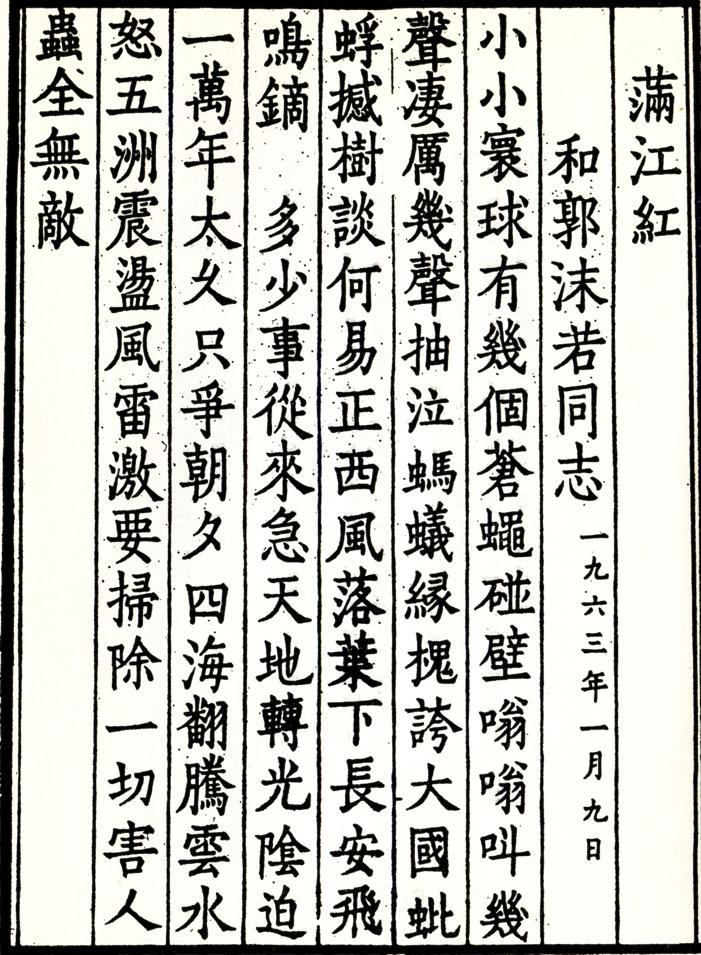 滿江紅
和郭沫若同志 一九六三年一月九日
小小寰球有幾個蒼蠅碰壁嗡嗡叫幾
聲凄厲幾聲抽泣螞蟻緣槐誇大國蚍
蜉撼樹談何易正西風落葉下長安飛
鳴鏑 多少事從來急天地轉光陰迫
一萬年太久只爭朝夕四海翻騰雲水
怒五洲震盪風雷激要掃除一切害人
蟲全無敵